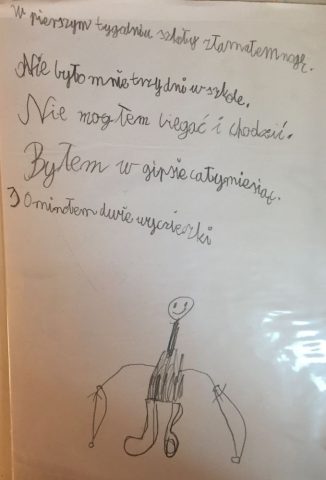 W pierszym tygodniu szkoły złamałem nogę.
Nie było mnie trzy dni w szkole.
Nie mogłem biegać i chodzić.
Byłem w gipsie cały miesiąc.
I Ominołem dwie wycieszki